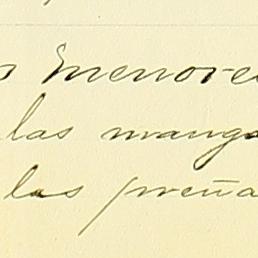 s menores
las manga
las preña